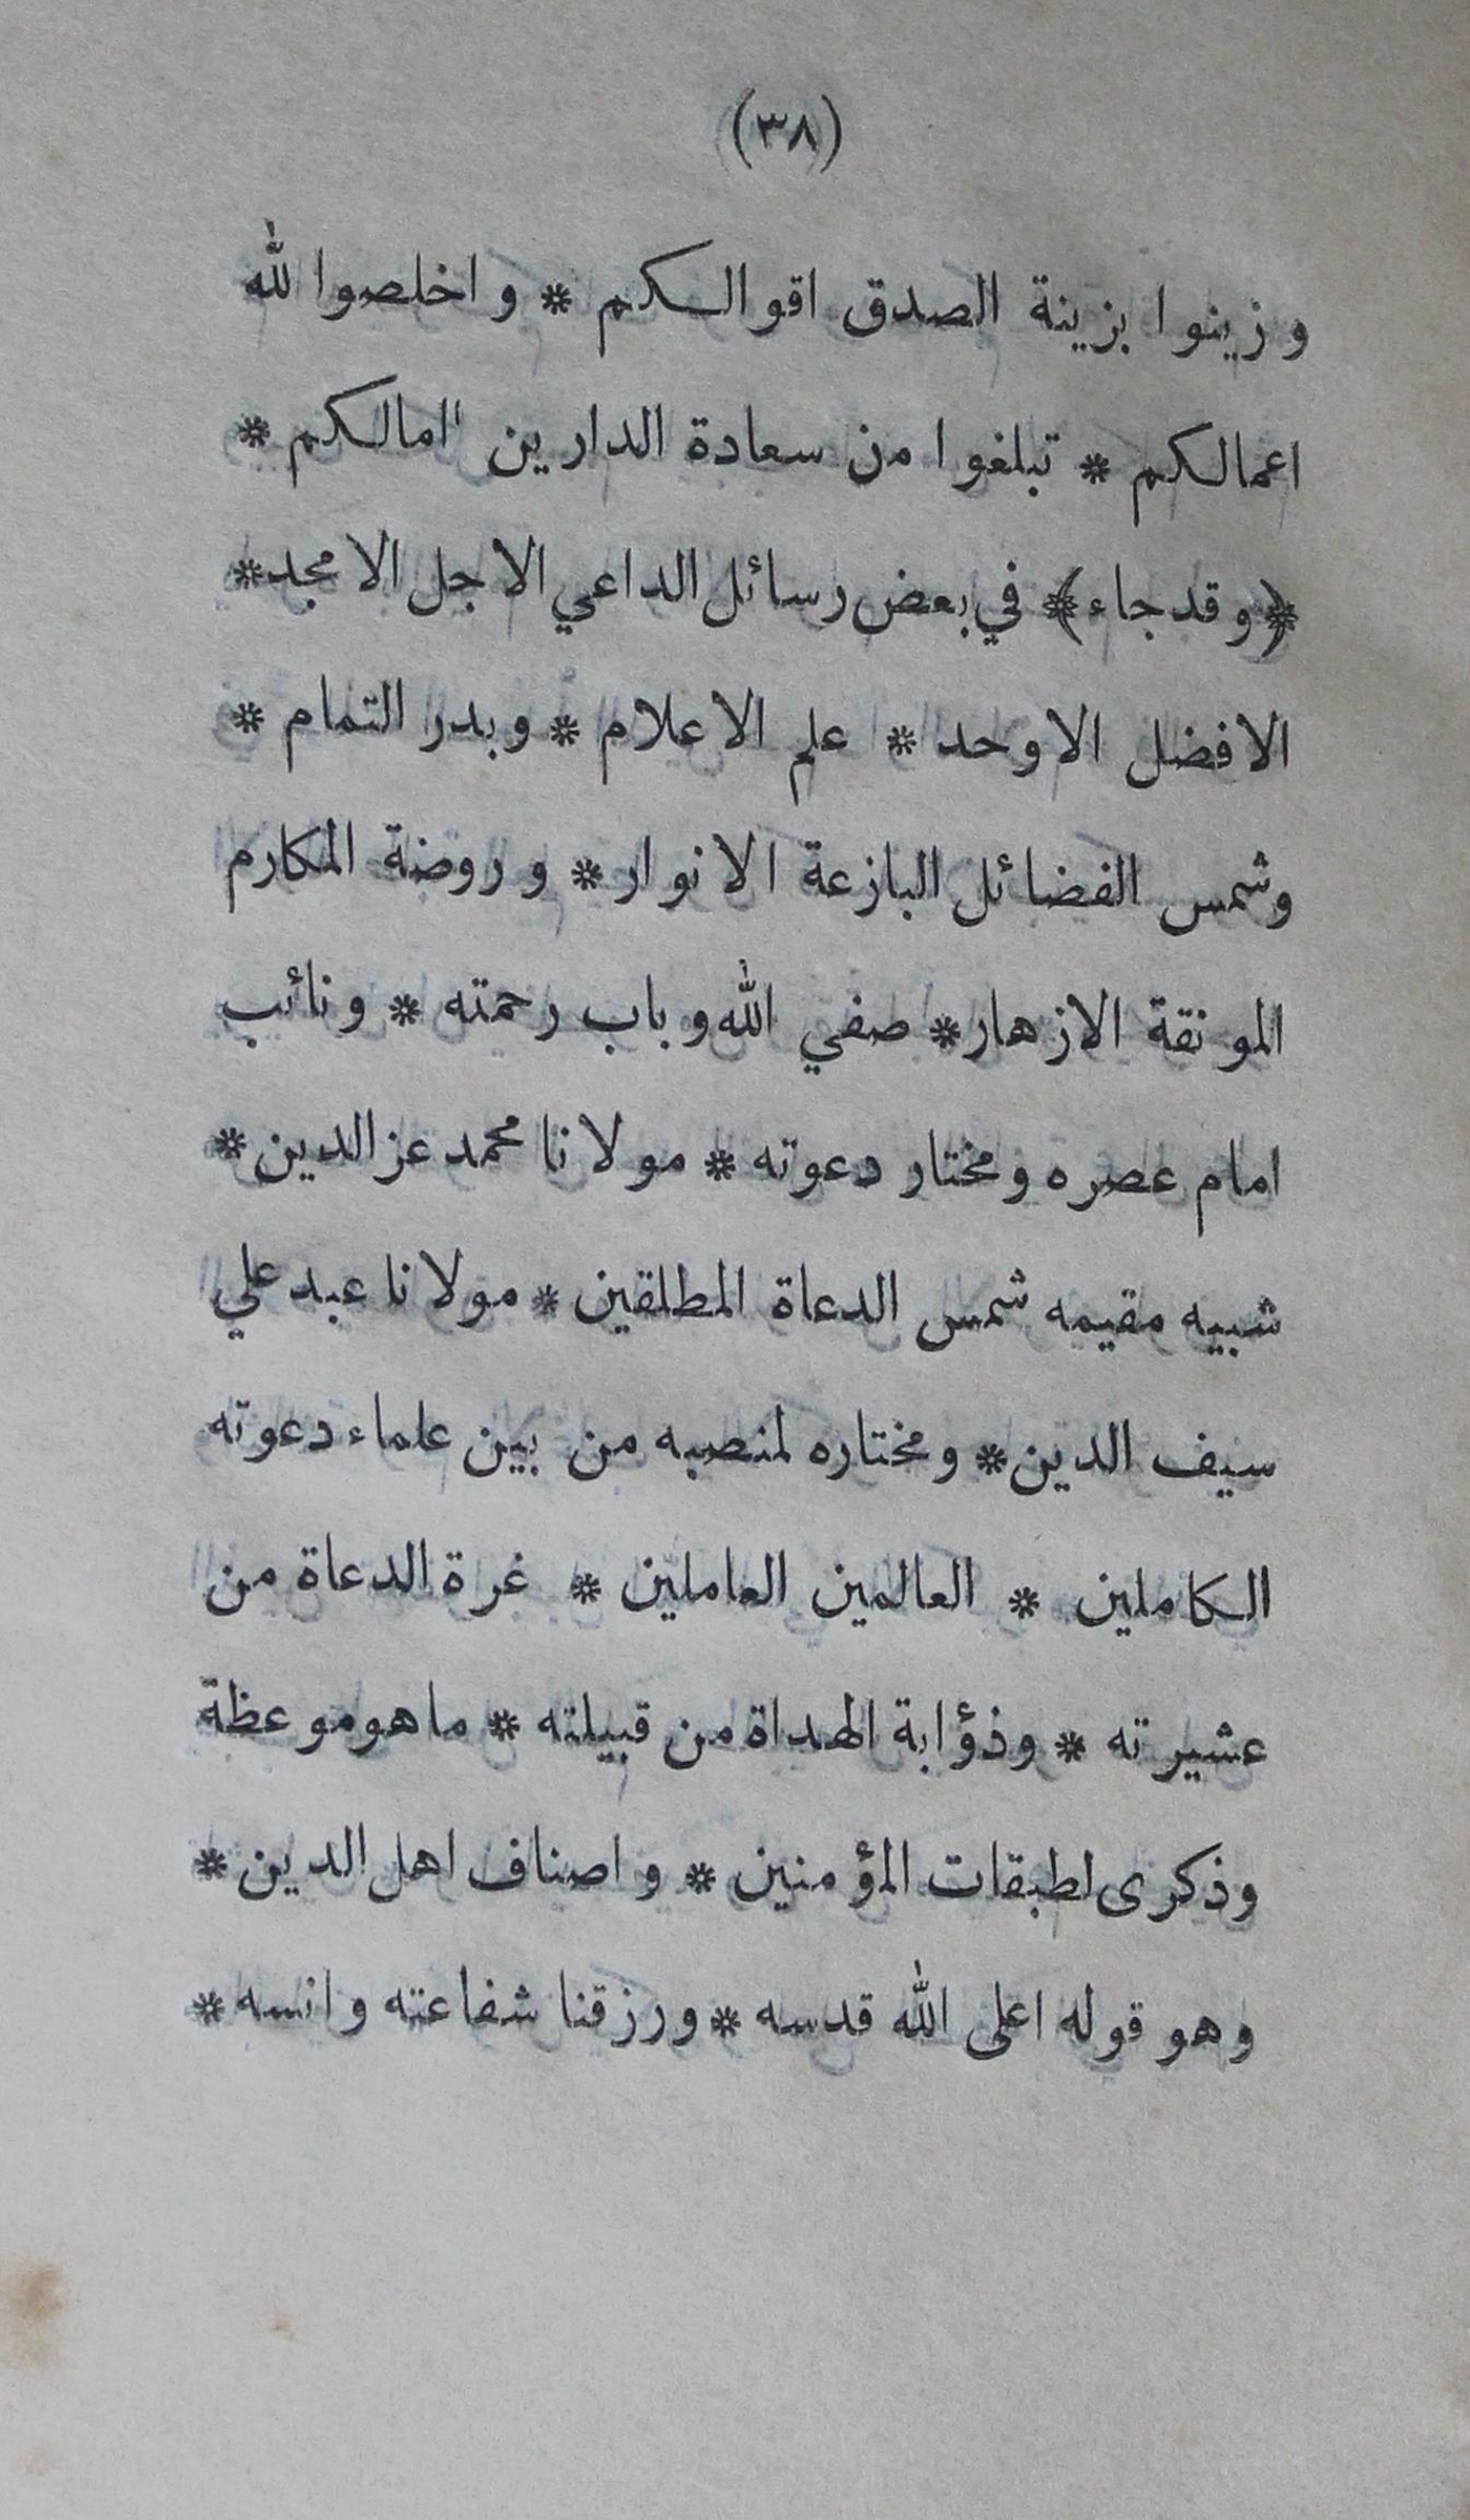 (٣٨)
وزينوا بزينة الصدق اقوالكم * واخلصوا لله
اعمالكم * تبلغوا من سعادة الدارين اٰمالكم *
﴿وقد جاء﴾ في بعض رسائل الداعي الاجل الامجد *
الافضل الاوحد * علم الاعلام * وبدر التمام *
وشمس الفضائل البازعة الانوار * وروضة المكارم
المونقة الازهار * صفي الله وباب رحمته * ونائب
امام عصره ومختار دعوته * مولانا محمد عز الدين *
شبيه مقيمه شمس الدعاة المطلقين * مولانا عبد علي
سيف الدين * ومختاره لمنصبه من بين علماء دعوته
الكاملين * العالمين العاملين * غرة الدعاة من
عشيرته * وذؤابة الهداة من قبيلته * ما هو موعظة
وذكرى لطبقات المؤمنين * واصناف اهل الدين *
وهو قوله اعلى الله قدسه * ورزقنا شفاعته وانسه *